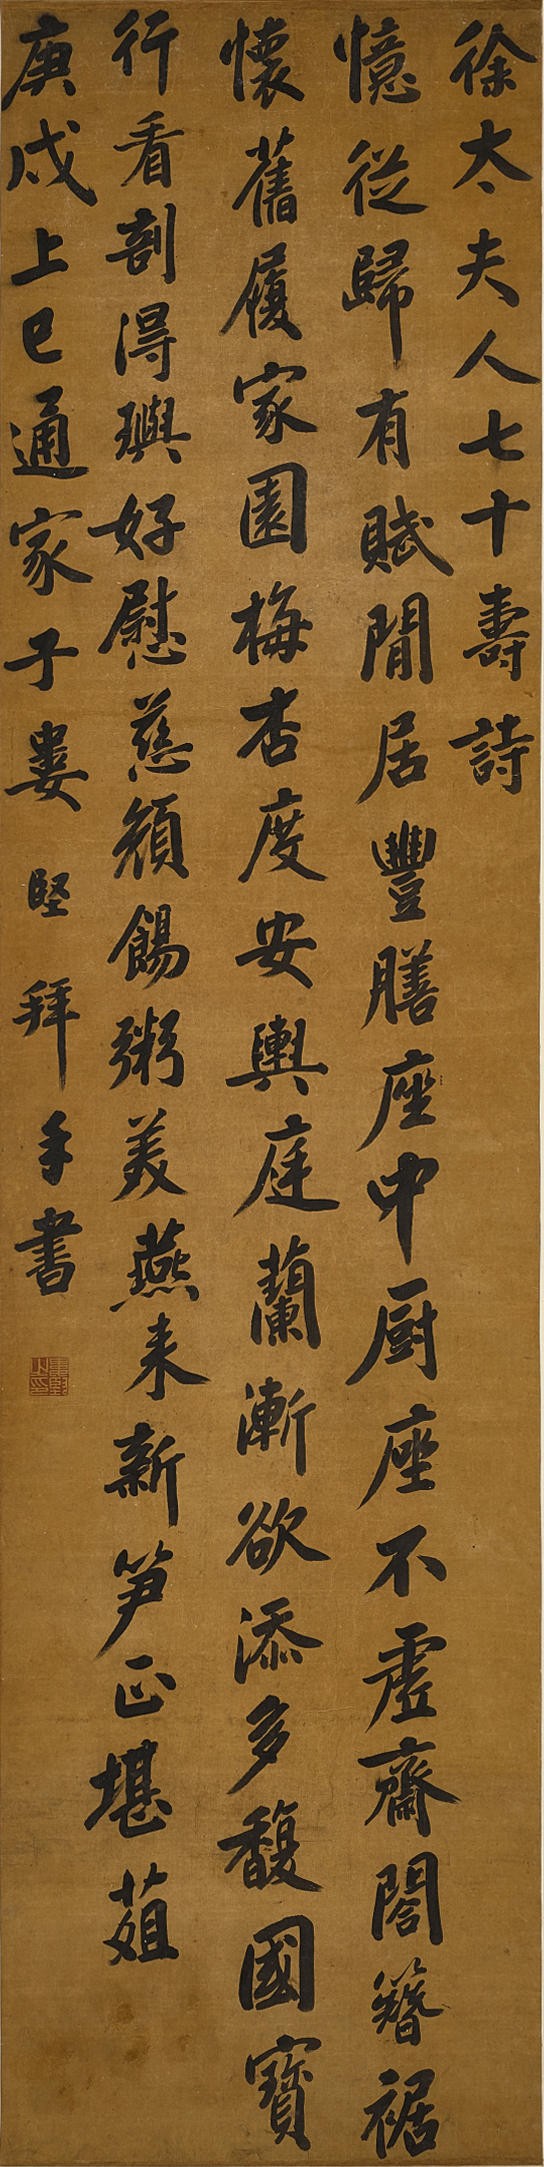 徐太夫人七十壽詩
憶從歸有賦閒居豐膳座中厨座不虛齋閤簪裾
懷舊履家園梅杏度安輿庭蘭漸欲添多馥國寶
行看剖得璵好慰慈顏餳粥美燕來新笋正堪葅
庚戌上巳通家子婁堅拜手書